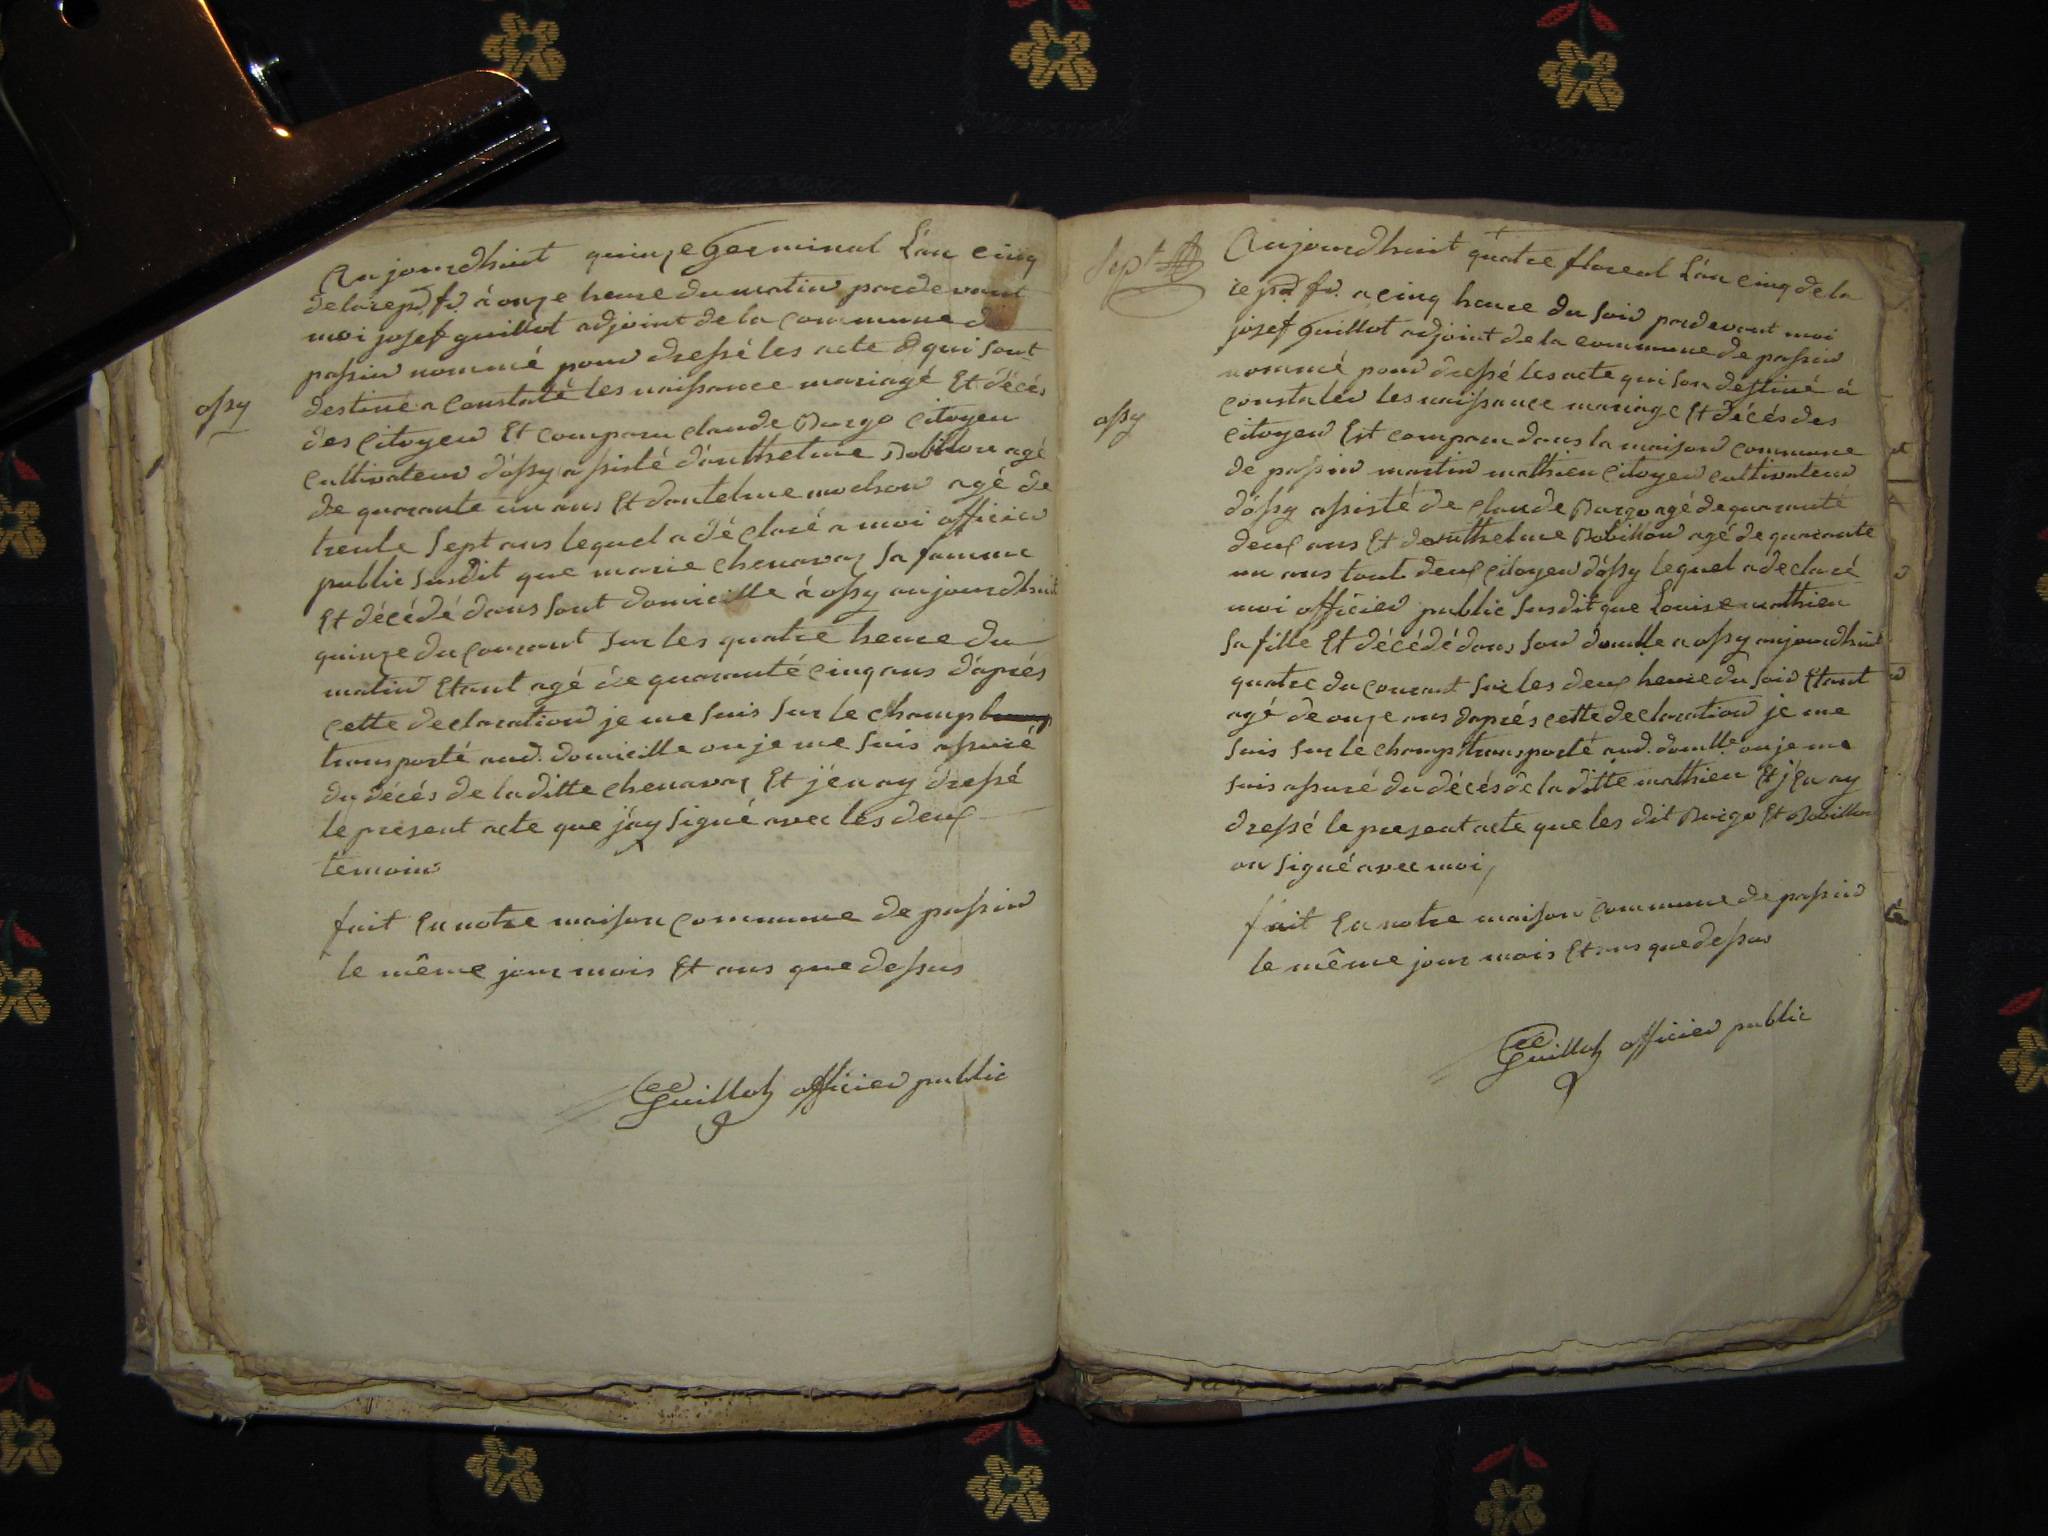 Aujourdhuit quinze Germinal L'an cinq
de la rep. fr. à onze heure du matin pardevant
moi josef guillot adjoint de la commune de
passin nommé pour dressé les acte qui sont
destiné a constaté les naissance mariagé Et décés
ossy
des citoyen Et comparu claude Burgo citoyen
cultivateur d'ossy assisté d'anthelme Bobillon agé
de quarante un ans Et dantelme modson agé de
trente sept ans lequel a déclaré a moi officier
public susdit que marie chenavaz sa famme
Et décédé dans sont domicille à ossy aujourdhuit
quinze du courant sur les quatre heure du
matin Etant agé de quaranté cinq ans d'aprés
cette declaration je me suis sur le champ
transporté aud. domicille ou je me suis assuré
du décés de la ditte chenavaz Et j'en ay dressé
le present acte que j'ay signé avec les deux
temoin
fait En notre maison commune de passin
le même jour mois Et ans que dessus
Guillot officier public
Sept
Aujourdhuit quatre floreal L'an cinq de la
rep. fr. a cinq heure du soir pardevant moi
josef guillot adjoint de la commune de passin
nommé pour dressé les acte qui son destiné à
constater les naissance mariage Et décés des
ossy
citoyen Est comparu dans la maison commune
de passin martin mathieu citoyen cultivateur
d'ossy assisté de claude Burgo agé de quaranté
deux ans Et de anthelme Bobillon agé de quarante
un ans tout deux citoyen d'ossy lequel a declaré
moi officier public susdit que Louise mathieu
sa fille Et décédé dans son domlle a ossy aujourdhuit
quatre du courant sur les deux heure du soir Etant
agé de onze ans d'aprés cette declaration je me
suis sur le champ transporté aud. domlle ou je me
suis assuré du décés de la ditte mathieu Et j'En ay
dressé le present acte que les dit Burgo Et Bobillon
on signé avec moi,
fait En notre maison commune de passin
le même jour mois Et ans que dessus
Guillot officier public